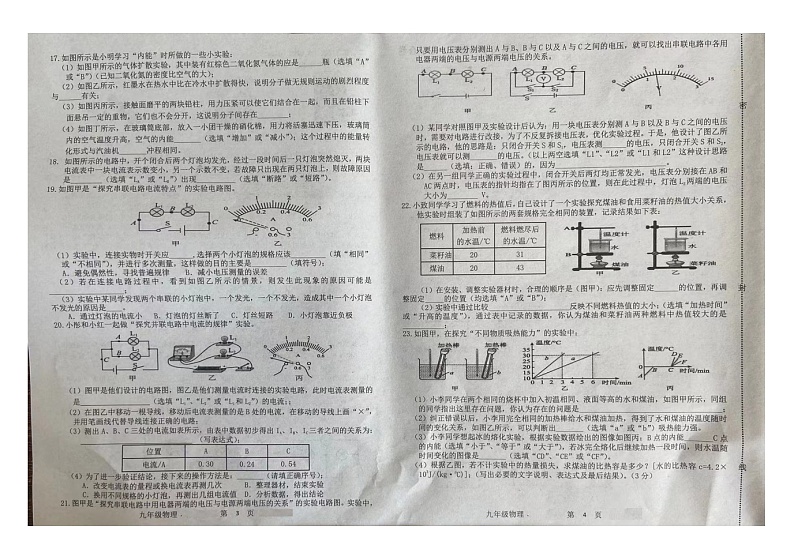 17.如图所示是小明学习“内能”时所做的一些小实验:
(1)如图甲所示的气体扩散实验,其中装有红棕色二氧化氮气体的应是______瓶(选填“A”
或“B”)(已知二氧化氮的密度比空气的大);
(2)如图乙所示,红墨水在热水中比在冷水中扩散得快,说明分子做无规则运动的剧烈程度
与______有关;
(3)如图丙所示,接触面磨平的两块铅柱,用力压紧可以使它们结合在一起,而且在铅柱下
面悬吊一定的重物,它们也不会分开,这说明分子间存在______;
(4)如图丁所示,在玻璃筒底部,放入一小团干燥的硝化棉,用力将活塞迅速下压,玻璃筒
内的空气温度升高,空气的内能______(选填“增加”或“减小”);这个过程中的能量转
化形式与汽油机______冲程相同。
18. 如图所示的电路中,开个闭合后两个灯泡均发光,经过一段时间后一只灯泡突然熄灭,两块
电流表中一块电流表示数变小,另一个示数不变,若故障只出现在两只灯泡上,则故障原因
是______(选填“L₁”或“L₂”)出现______(选填“断路”或“短路”)。
19.如图甲是“探究串联电路电流特点”的实验电路图。
L₁ L₂
A B C
S
甲
乙
(1)实验中,连接实物时开关应______,选择两个小灯泡的规格应该______(填“相同”
或“不相同”),并进行多次测量,这样做的目的主要是______(填符号);
A.避免偶然性,寻找普遍规律 B.减小电压测量的误差
(2)若在连接电路过程中,看到如图乙所示的情景,则发生此现象的原因可能是
______;
(3)实验中某同学发现两个串联的小灯泡中,一个发光,一个不发光,造成其中一个小灯泡
不发光的原因是______。
A.通过灯泡的电流小 B.灯泡的灯丝断了 C.灯丝短路 D.小灯泡靠近负极
20.小彤和小红一起做“探究并联电路中电流的规律”实验。
甲 乙 丙
(1)图甲是他们设计的电路图,图乙是他们测量电流时连接的实验电路,此时电流表测量的
是______(选填“L₁”、“L₂”或“L₁和L₂”)的电流;
(2)在图乙中移动一根导线,移动后电流表测量的是B处的电流,在移动的导线上画“×”,
并用笔画线代替导线连接正确的电路;
(3)测出A、B、C三处的电流如表所示,由表中数据初步得出I₁、I₂、I₃三者之间的关系为:
______(写表达式);
位置 A B C
电流/A 0.30 0.24 0.54
(4)为了进一步验证结论,接下来的操作方法是:______(请填正确序号);
A.改变电流表的量程或换电流表再测几次 B.整理器材,结束实验
C.换用不同规格的小灯泡,再测出几组电流值 D.分析数据,得出结论
21.图甲是“探究串联电路中用电器的电压与电源两端电压的关系”的实验电路图。实验中,
九年级物理 第 3 页
只要用电压表分别测出A与B、B与C以及A与C之间的电压,就可以找出串联电路中各用
电器两端的电压与电源两端电压的关系。
甲 乙 丙
(1)某同学对照图甲及实验设计后认为:用一块电压表分别测A与B以及B与C之间的电压
时,需要对电路进行改接,为了不反复拆接电压表,优化实验过程。于是,他设计了图乙所
示的电路,他的思路是:只闭合开关S和S₁,电压表测______的电压,只闭合开关S和S₂,
电压表就可测______的电压。(以上两空选填“L1”、“L2”或“L1和L2”)这种设计思路
是______(选填:正确、错误)的,因为______。
(2)在另一组同学正确的实验过程中,闭合开关后两灯均正常发光,电压表分别接在AB和
AC两点时,电压表的指针均指在了图丙所示的位置,则在此过程中,灯泡L₂两端的电压
大小为______V。
22.小致同学学习了燃料的热值后,自己设计了一个实验探究煤油和食用菜籽油的热值大小关系,
他实验时组装了如图所示的两套规格完全相同的装置,记录结果如下表:
燃料 加热前的水温/℃ 燃料燃尽后的水温/℃
菜籽油 20 31
煤油 20 43
温度计
水
煤油
甲
温度计
水
菜籽油
乙
(1)在安装、调整实验器材时,合理的顺序是(图甲):应先调整固定______的位置,再调
整固定______的位置(均选填“A”或“B”);
(2)实验中通过比较______反映不同燃料热值的大小;(选填“加热时间”
或“升高的温度”),通过表中记录的数据,你认为煤油和菜籽油两种燃料中热值较大的是
______;
23.如图甲,在探究“不同物质吸热能力”的实验中:
加热棒 加热棒
甲
温度/℃
时间/min
乙
温度/℃
时间/min
丙
(1)小李同学在两个相同的烧杯中加入初温相同、液面高等的水和煤油,如图甲所示,同组
的同学指出这里存在问题,你认为存在的问题是______;
(2)纠正错误以后,小李用完全相同的加热棒给水和煤油加热,得到了水和煤油的温度随时
间的变化关系,如图乙所示,可以判断出______(选填“a”或“b”)吸热能力强。
(3)小李同学想起冰的熔化实验,根据实验数据绘出的图像如图丙;B点的内能______C点
的内能(选填“小于”、“等于”或“大于”)。若冰完全熔化后继续加热一段时间,则水温随
时间变化的图像是______(选填“CD”、“CE”或“CF”)。
(4)根据乙图,若不计实验中的热量损失,求煤油的比热容是多少?[水的比热容c=4.2×
10³J/(kg·℃)];(写出必要的文字说明、表达式及最后结果)。(3分)
九年级物理 第 4 页
密
封
线